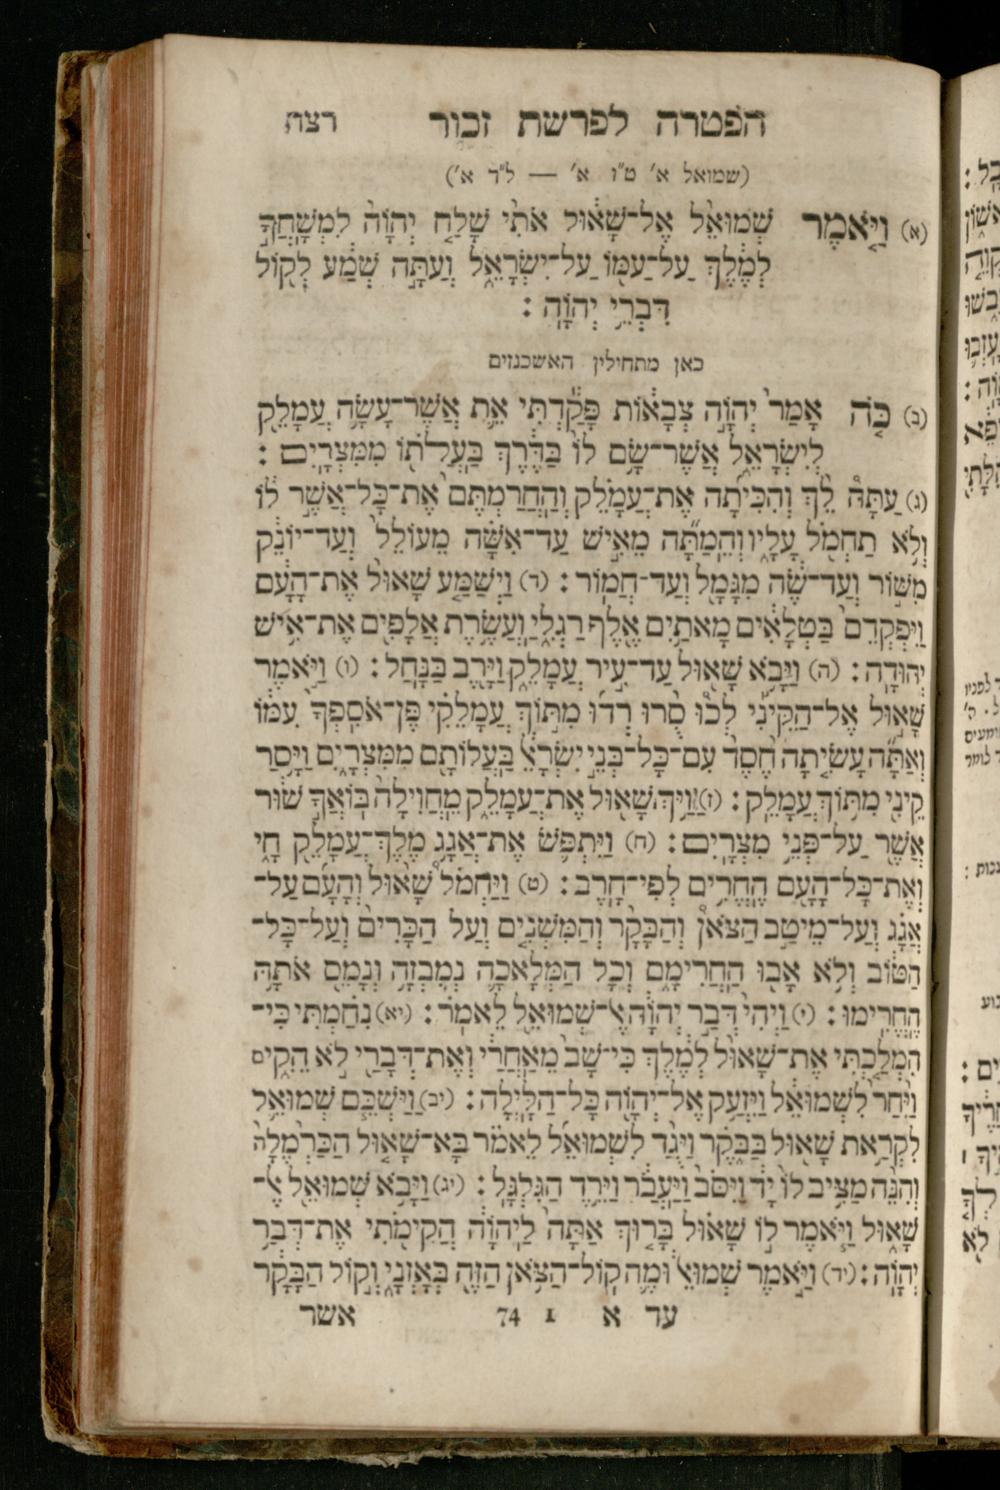 הפטרה לפרשת זכור רצח
(שמואל א׳ ט״ו א׳ — ל״ד א׳)
(א) וַיֹּאמֶר שְׁמוּאֵל אֶל־שָׁאוּל אֹתִי שָׁלַח יְהוָֹה לִמְשָׁחֳךָ
לְמֶלֶךְ עַל־עַמּוֹ עַל־יִשְׂרָאֵל וְעַתָּה שְׁמַע לְקוֹל
דִּבְרֵי יְהוָֹה :
כאן מתחילין האשכנזים
(ב) כֹּה אָמַר יְהוָֹה צְבָאוֹת פָּקַדְתִּי אֵת אֲשֶׁר־עָשָׂה עֲמָלֵק
לְיִשְׂרָאֵל אֲשֶׁר־שָׂם לוֹ בַּדֶּרֶךְ בַּעֲלֹתוֹ מִמִּצְרָיִם :
(ג) עַתָּה לֵךְ וְהִכִּיתָה אֶת־עֲמָלֵק וְהַחֲרַמְתֶּם אֶת־כָּל־אֲשֶׁר לוֹ
וְלֹא תַחְמֹל עָלָיו וְהֵמַתָּה מֵאִישׁ עַד־אִשָּׁה מֵעוֹלֵל וְעַד־יוֹנֵק
מִשּׁוֹר וְעַד־שֶׂה מִגָּמָל וְעַד־חֲמוֹר : (ד) וַיְשַׁמַּע שָׁאוּל אֶת־הָעָם
וַיִּפְקְדֵם בַּטְּלָאִים מָאתַיִם אֶלֶף רַגְלִי וַעֲשֶׂרֶת אֲלָפִים אֶת־אִישׁ
יְהוּדָה : (ה) וַיָּבֹא שָׁאוּל עַד־עִיר עֲמָלֵק וַיָּרֶב בַּנָּחַל : (ו) וַיֹּאמֶר
שָׁאוּל אֶל־הַקֵּינִי לְכוּ סֻרוּ רְדוּ מִתּוֹךְ עֲמָלֵקִי פֶּן־אֹסִפְךָ עִמּוֹ
וְאַתָּה עָשִׂיתָה חֶסֶד עִם־כָּל־בְּנֵי יִשְׂרָאֵל בַּעֲלוֹתָם מִמִּצְרָיִם וַיָּסַר
קֵינִי מִתּוֹךְ עֲמָלֵק : (ז) וַיַּךְ שָׁאוּל אֶת־עֲמָלֵק מֵחֲוִילָה בּוֹאֲךָ שׁוּר
אֲשֶׁר עַל־פְּנֵי מִצְרָיִם : (ח) וַיִּתְפֹּשׂ אֶת־אֲגַג מֶלֶךְ־עֲמָלֵק חָי
וְאֶת־כָּל־הָעָם הֶחֱרִים לְפִי־חָרֶב : (ט) וַיַּחְמֹל שָׁאוּל וְהָעָם עַל־
אֲגָג וְעַל־מֵיטַב הַצֹּאן וְהַבָּקָר וְהַמִּשְׁנִים וְעַל הַכָּרִים וְעַל־כָּל־
הַטּוֹב וְלֹא אָבוּ הַחֲרִימָם וְכָל הַמְּלָאכָה נְמִבְזָה וְנָמֵס אֹתָהּ
הֶחֱרִימוּ : (י) וַיְהִי דְּבַר יְהוָֹה אֶל־שְׁמוּאֵל לֵאמֹר : (יא) נִחַמְתִּי כִּי־
הִמְלַכְתִּי אֶת־שָׁאוּל לְמֶלֶךְ כִּי־שָׁב מֵאַחֲרַי וְאֶת־דְּבָרַי לֹא הֵקִים
וַיִּחַר לִשְׁמוּאֵל וַיִּזְעַק אֶל־יְהוָֹה כָּל־הַלָּיְלָה : (יב) וַיַּשְׁכֵּם שְׁמוּאֵל
לִקְרַאת שָׁאוּל בַּבֹּקֶר וַיֻּגַּד לִשְׁמוּאֵל לֵאמֹר בָּא־שָׁאוּל הַכַּרְמֶלָה
וְהִנֵּה מַצִּיב לוֹ יָד וַיִּסֹּב וַיַּעֲבֹר וַיֵּרֶד הַגִּלְגָּל : (יג) וַיָּבֹא שְׁמוּאֵל אֶל־
שָׁאוּל וַיֹּאמֶר לוֹ שָׁאוּל בָּרוּךְ אַתָּה לַיהוָֹה הֲקִימֹתִי אֶת־דְּבַר
יְהוָֹה : (יד) וַיֹּאמֶר שְׁמוּאֵל וּמֶה קוֹל־הַצֹּאן הַזֶּה בְּאָזְנָי וְקוֹל הַבָּקָר
עד א I 74 אשר